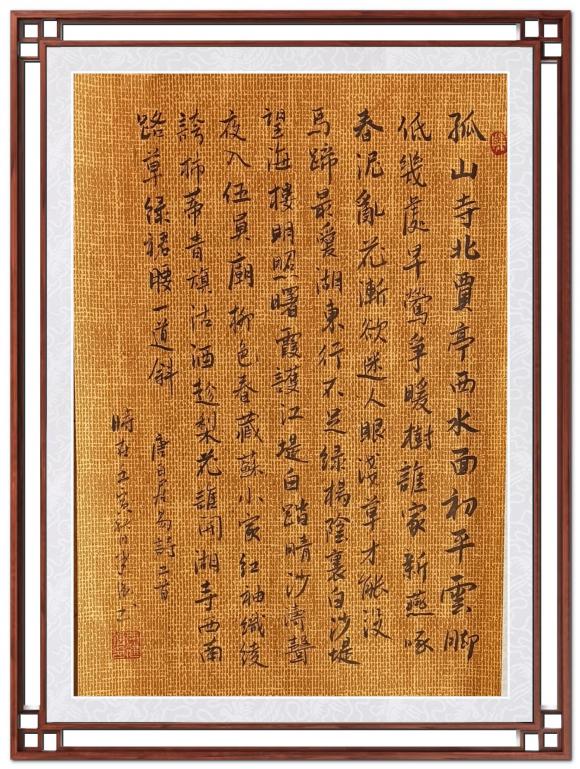 孤山寺北賈亭西水面初平雲脚
低幾處早鶯爭暖樹誰家新燕啄
春泥亂花漸欲迷人眼淺草才能没
馬蹄最愛湖東行不足綠楊陰裏白沙堤
望海樓明照曙霞護江堤白踏晴沙濤聲
夜入伍員廟柳色春藏蘇小家紅袖織綾
誇柿蒂青旗沽酒趁梨花誰開湖寺西南
路草綠裙腰一道斜
唐白居易詩二首
時在壬寅